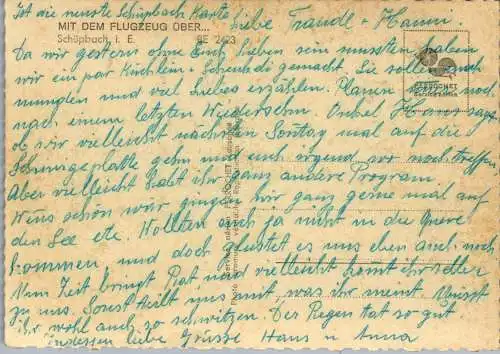 Ist die neuste Schüpbach Karte liebe Traudl + Hanni.
MIT DEM FLUGZEUG ÜBER...
Schüpbach, i. E. BE 2423
Da wir gestern ohne Euch lieben sein mussten haben
wir ein par Kirchlein - gemacht. Sie sollen euch
munden und viel liebes erzählen. Planen noch
nach einem letzten Wiedersehn. Onkel Hans sagt
ob wir vielleicht nächsten Sontag mal auf die
gehn und euch irgend wo noch treffen.
Aber vielleicht habt ihr ganz andere Program
Wens schön wär gingen wir ganz gerne mal auf
den See etc. Wollten euch ja nicht in die Quere
kommen und doch glustet es uns eben auch noch
Nun Zeit bringt Rat, und vielleicht komt ihr
zu uns. Sonst teilt uns mit, was ihr meint.
ihr wohl auch so schwitzen. Der Regen tat so gut
Indessen liebe Grüsse Hans u Anna